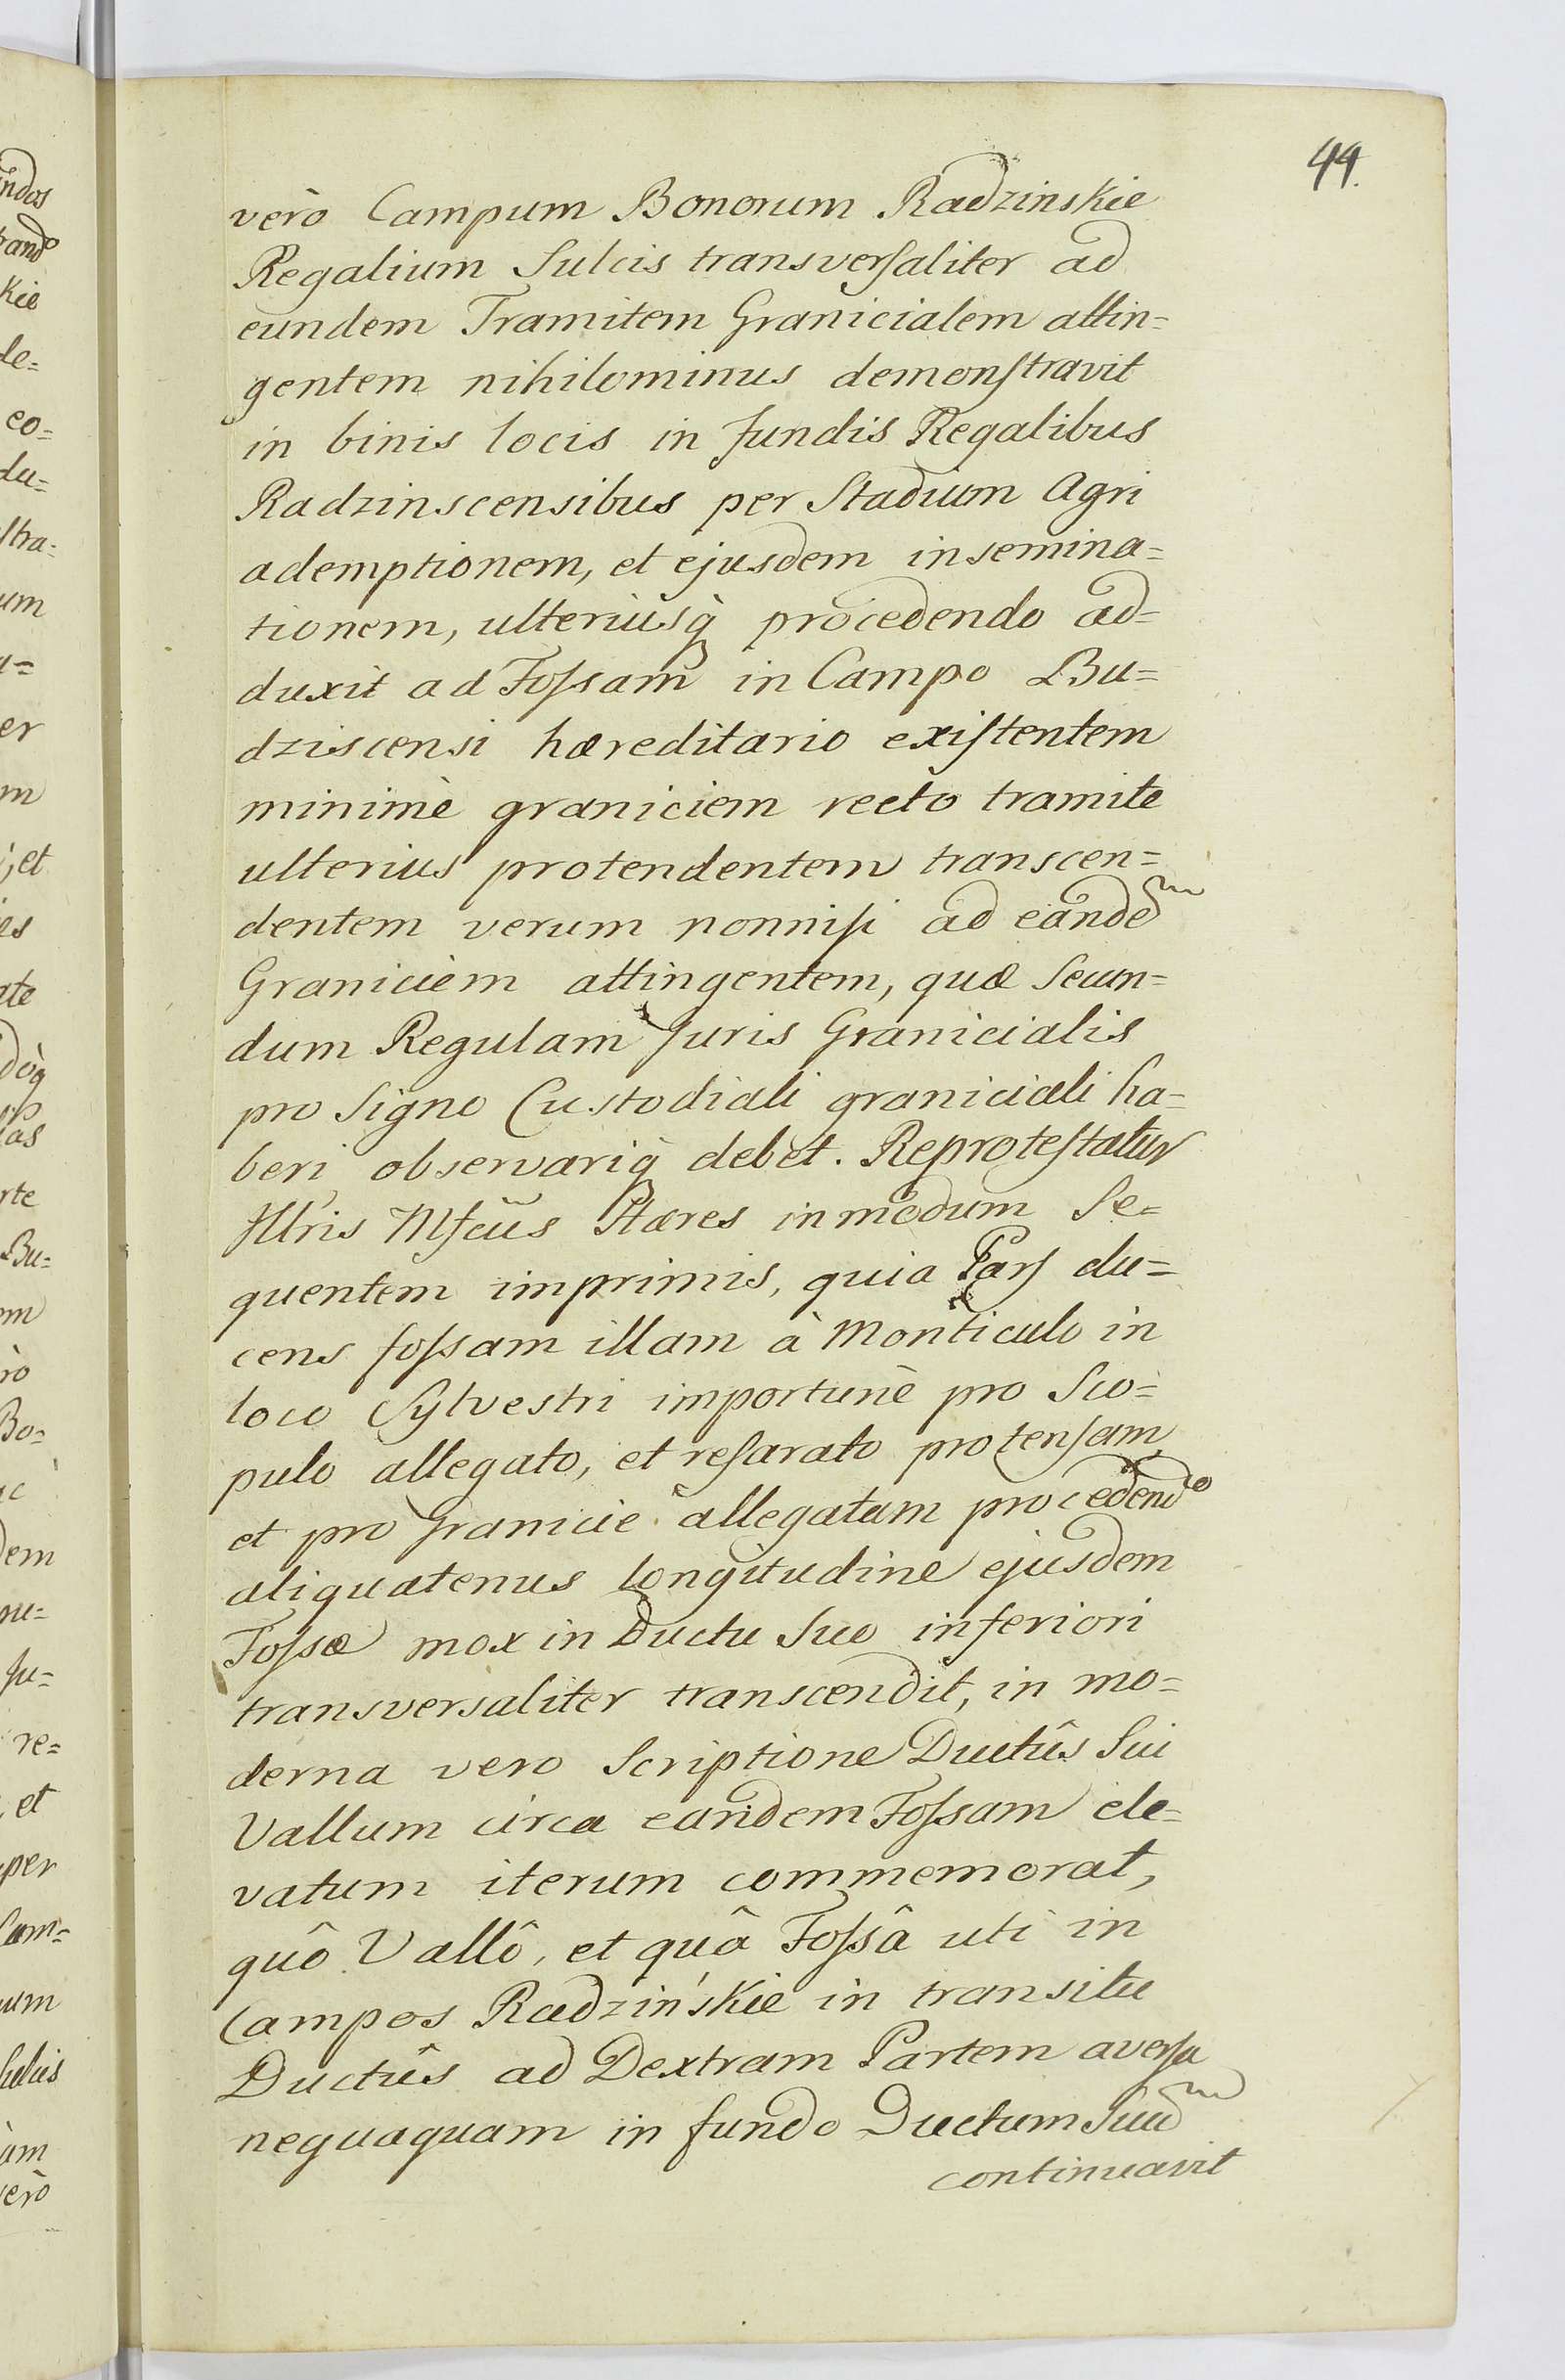 44.
verò Campum Bonorum Radzinskie
Regalium Sulcis transversaliter ad
eundem Tramitem Granicialem attin=
gentem nihilominus demonstravit
in binis locis in fundis Regalibus
Radzinscensibus per Stadium Agri
ademptionem, et ejusdem insemina=
tionem, ulteriusq̀ procedendo ad=
duxit ad Fossam in Campo Bu=
dziscensi hæreditario existentem
minimè graniciem recto tramite
ulterius protendentem transcen=
dentem verum nonnisi ad eandem
Graniciem attingentem, quæ Secun=
dum Regulam Juris Granicialis
pro Signo Custodiali graniciali ha=
beri observariq̀ debet. Reprotestatur
Illris Mfcus Hæres in modum Se=
quentem imprimis, quia Pars du=
cens fossam illam à Monticulo in
loco Sylvestri importunè pro Sco=
pulo allegato, et resarato protensam,
et pro Granicie allegatam procedendo
aliquatenus longitudine ejusdem
Fossæ mox in Ductu Suo inferiori
transversaliter transcendit, in mo=
derna vero Scriptione Ductûs Sui
Vallum circa eandem Fossam ele=
vatum iterum commemorat,
quô Vallô, et quâ Fossâ uti in
Campos Radzińskie in transitu
Ductûs ad Dextram Partem aversa
nequaquam in fundo Ductum Suum
continuavit
ndos
rando
Kie
de=
eo=
du=
stra=
um
er
m
et
es
ate
rte
Bu=
em
rò
Bo=
dem
nu=
Ju=
re=
, et
per
Cam=
um
Sulcis
am
verò